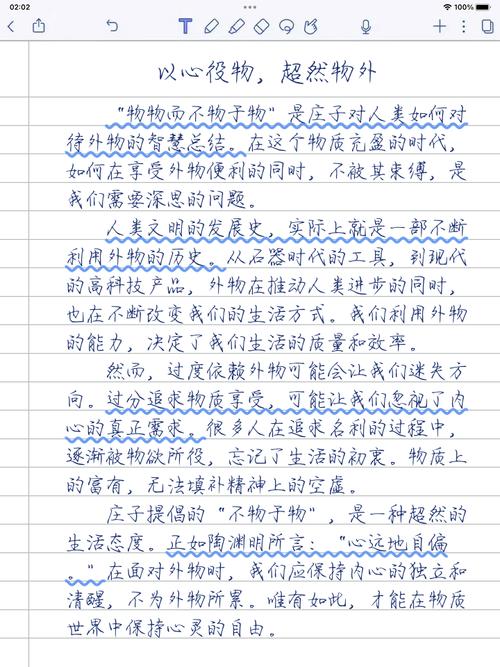 02:02
100%
以心役物，超然物外
“物物而不物于物”是庄子对人类如何对
待外物的智慧总结。在这个物质充盈的时代，
如何在享受外物便利的同时，不被其束缚，是
我们需要深思的问题。
人类文明的发展史，实际上就是一部不断
利用外物的历史。从石器时代的工具，到现代
的高科技产品，外物在推动人类进步的同时，
也在不断改变我们的生活方式。我们利用外物
的能力，决定了我们生活的质量和效率。
然而，过度依赖外物可能会让我们迷失方
向。过分追求物质享受，可能让我们忽视了内
心的真正需求。很多人在追求名利的过程中，
逐渐被物欲所役，忘记了生活的初衷。物质上
的富有，无法填补精神上的空虚。
庄子提倡的“不物于物”，是一种超然的
生活态度。正如陶渊明所言：“心远地自偏
。”在面对外物时，我们应保持内心的独立和
清醒，不为外物所累。唯有如此，才能在物质
世界中保持心灵的自由。